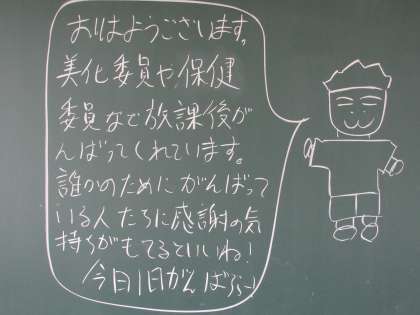 おはようございます。
美化委員や保健
委員など放課後が
んばってくれています。
誰かのためにがんばって
いる人たちに感謝の気
持ちがもてるといいね!
今日1日がんばろう!